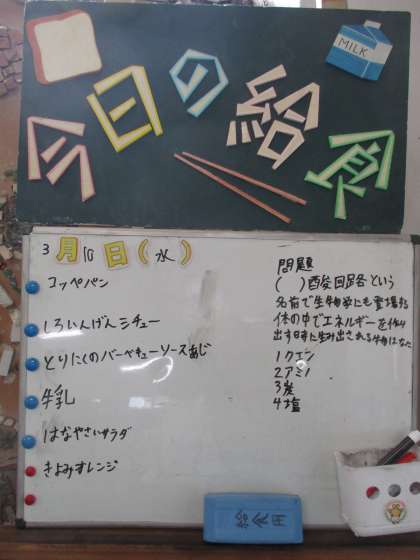 今日の給食
MILK
3月10日(水)
コッペパン
しろいんげんシチュー
とりにくのバーベキューソースあじ
牛乳
はなやさいサラダ
きよみオレンジ
問題
( )酸回路という
名前で生物学にも登場する
体の中でエネルギーを作り
出す時に生み出される物はなに
1クエン
2アミノ
3炭
4塩
給食用